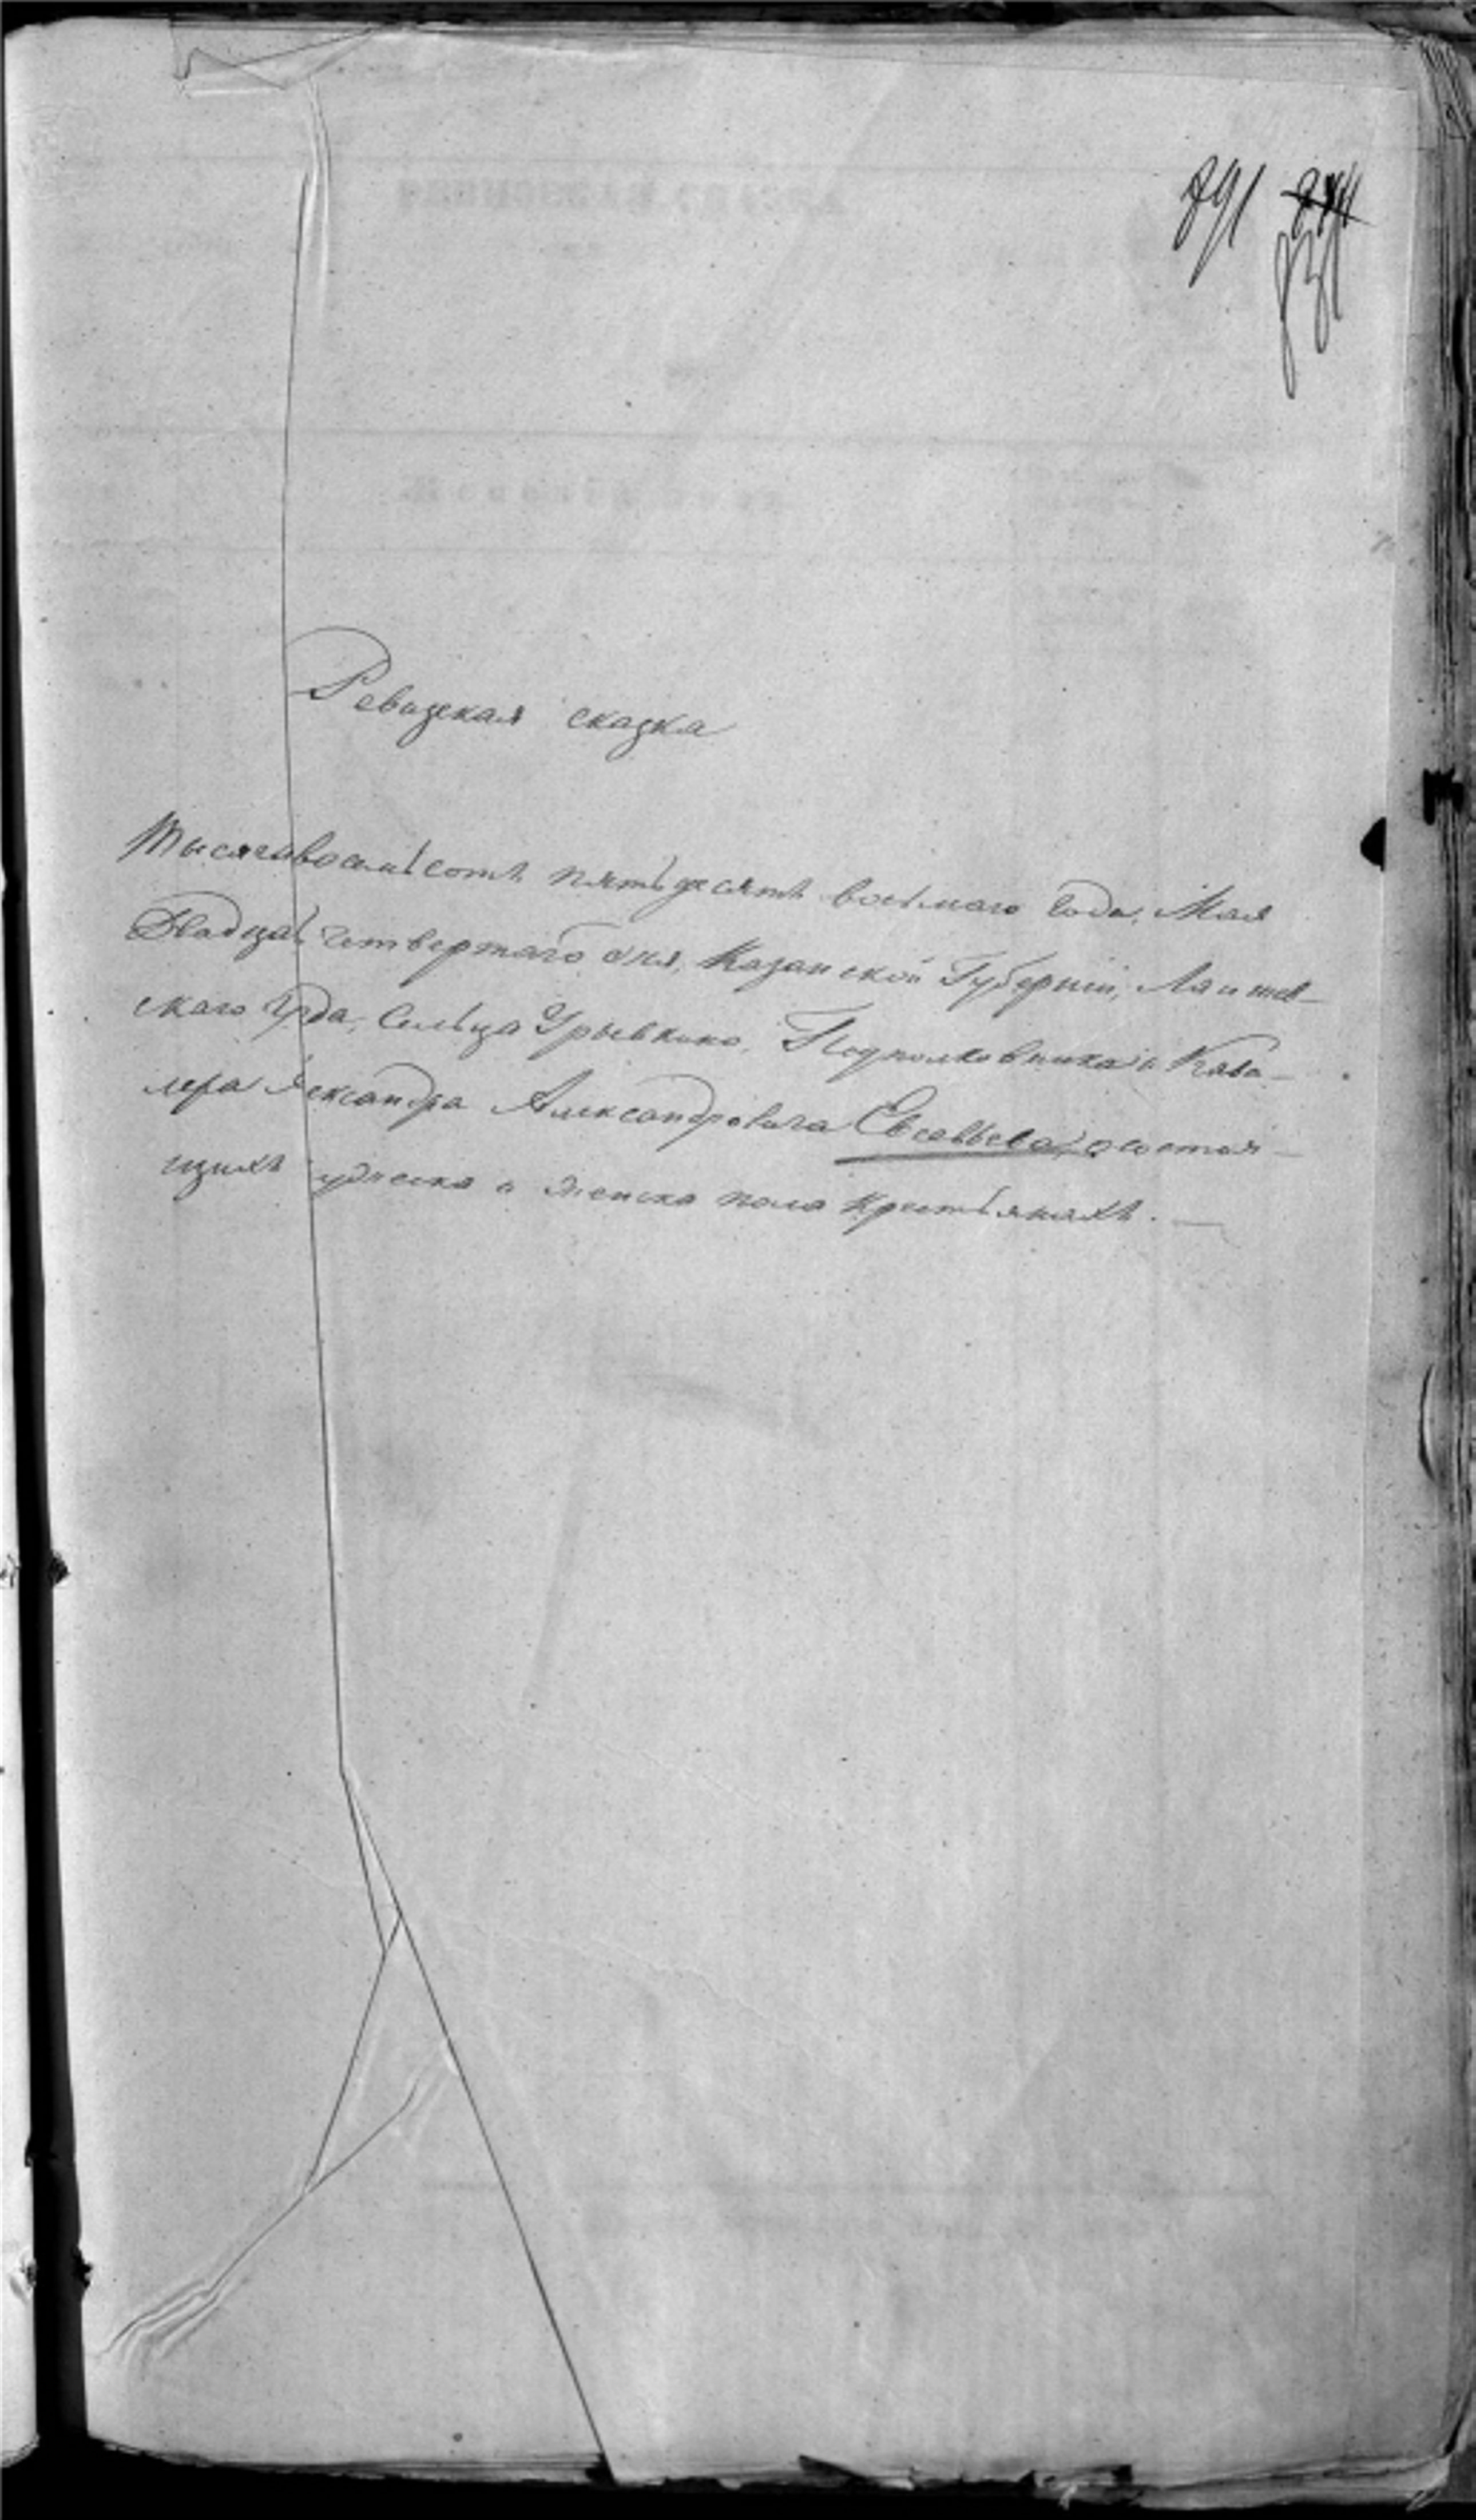 791
Ревизская сказка
Тысяча восемьсотъ пятьдесятъ восьмаго года, Мая
двадцать четвертаго дня, Казанской Губерніи, Лаишев-
скаго уѣзда, Сельца Урывкино, Подполковника и Кава-
лера Александра Александровича Евсевьева, о состоя-
щихъ мужеска и женска пола крестьянахъ.